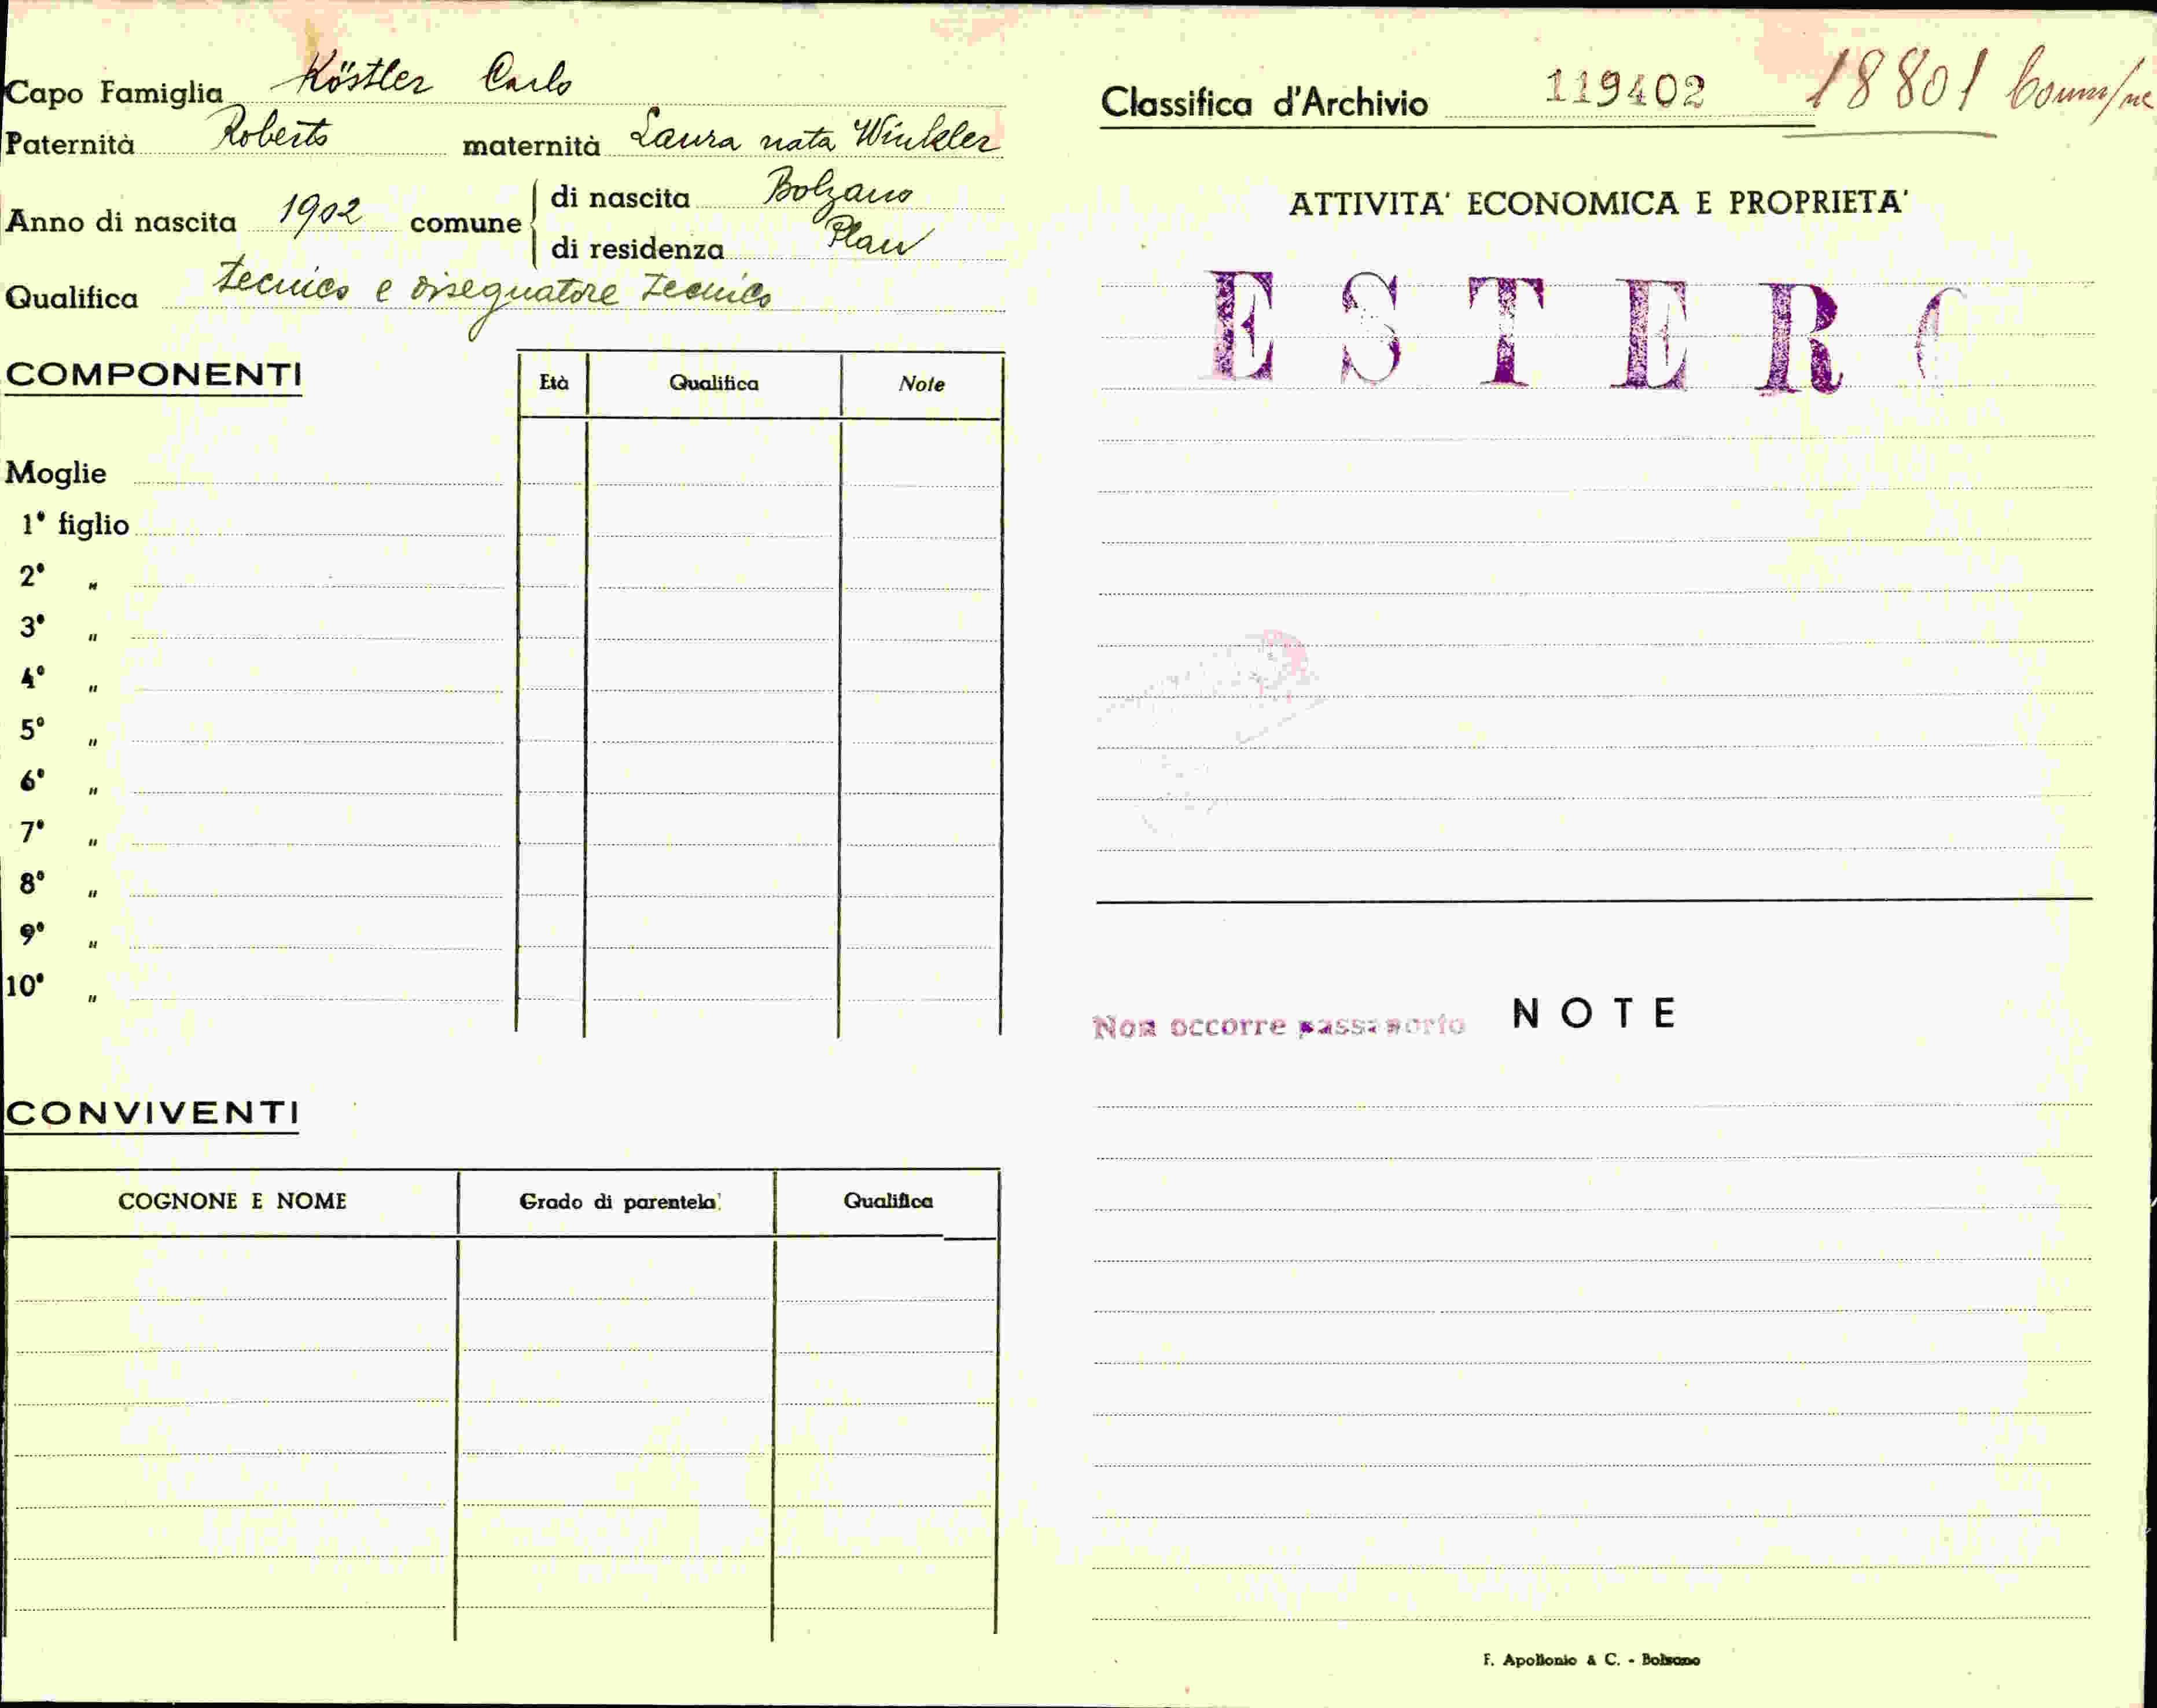 Capo Famiglia Köstler Carlo
Paternità Roberto maternità Laura nata Winkler
Anno di nascita 1902 comune di nascita Bolzano
di residenza Plan
Qualifica tecnico e disegnatore tecnico
COMPONENTI
Età Qualifica Note
Moglie
1° figlio
2° "
3° "
4° "
5° "
6° "
7° "
8° "
9° "
10° "
CONVIVENTI
COGNONE E NOME Grado di parentela Qualifica
Classifica d'Archivio 119402 18801
ATTIVITA' ECONOMICA E PROPRIETA'
ESTERO
Non occorre passaporto NOTE
F. Apollonio & C. - Bolzano